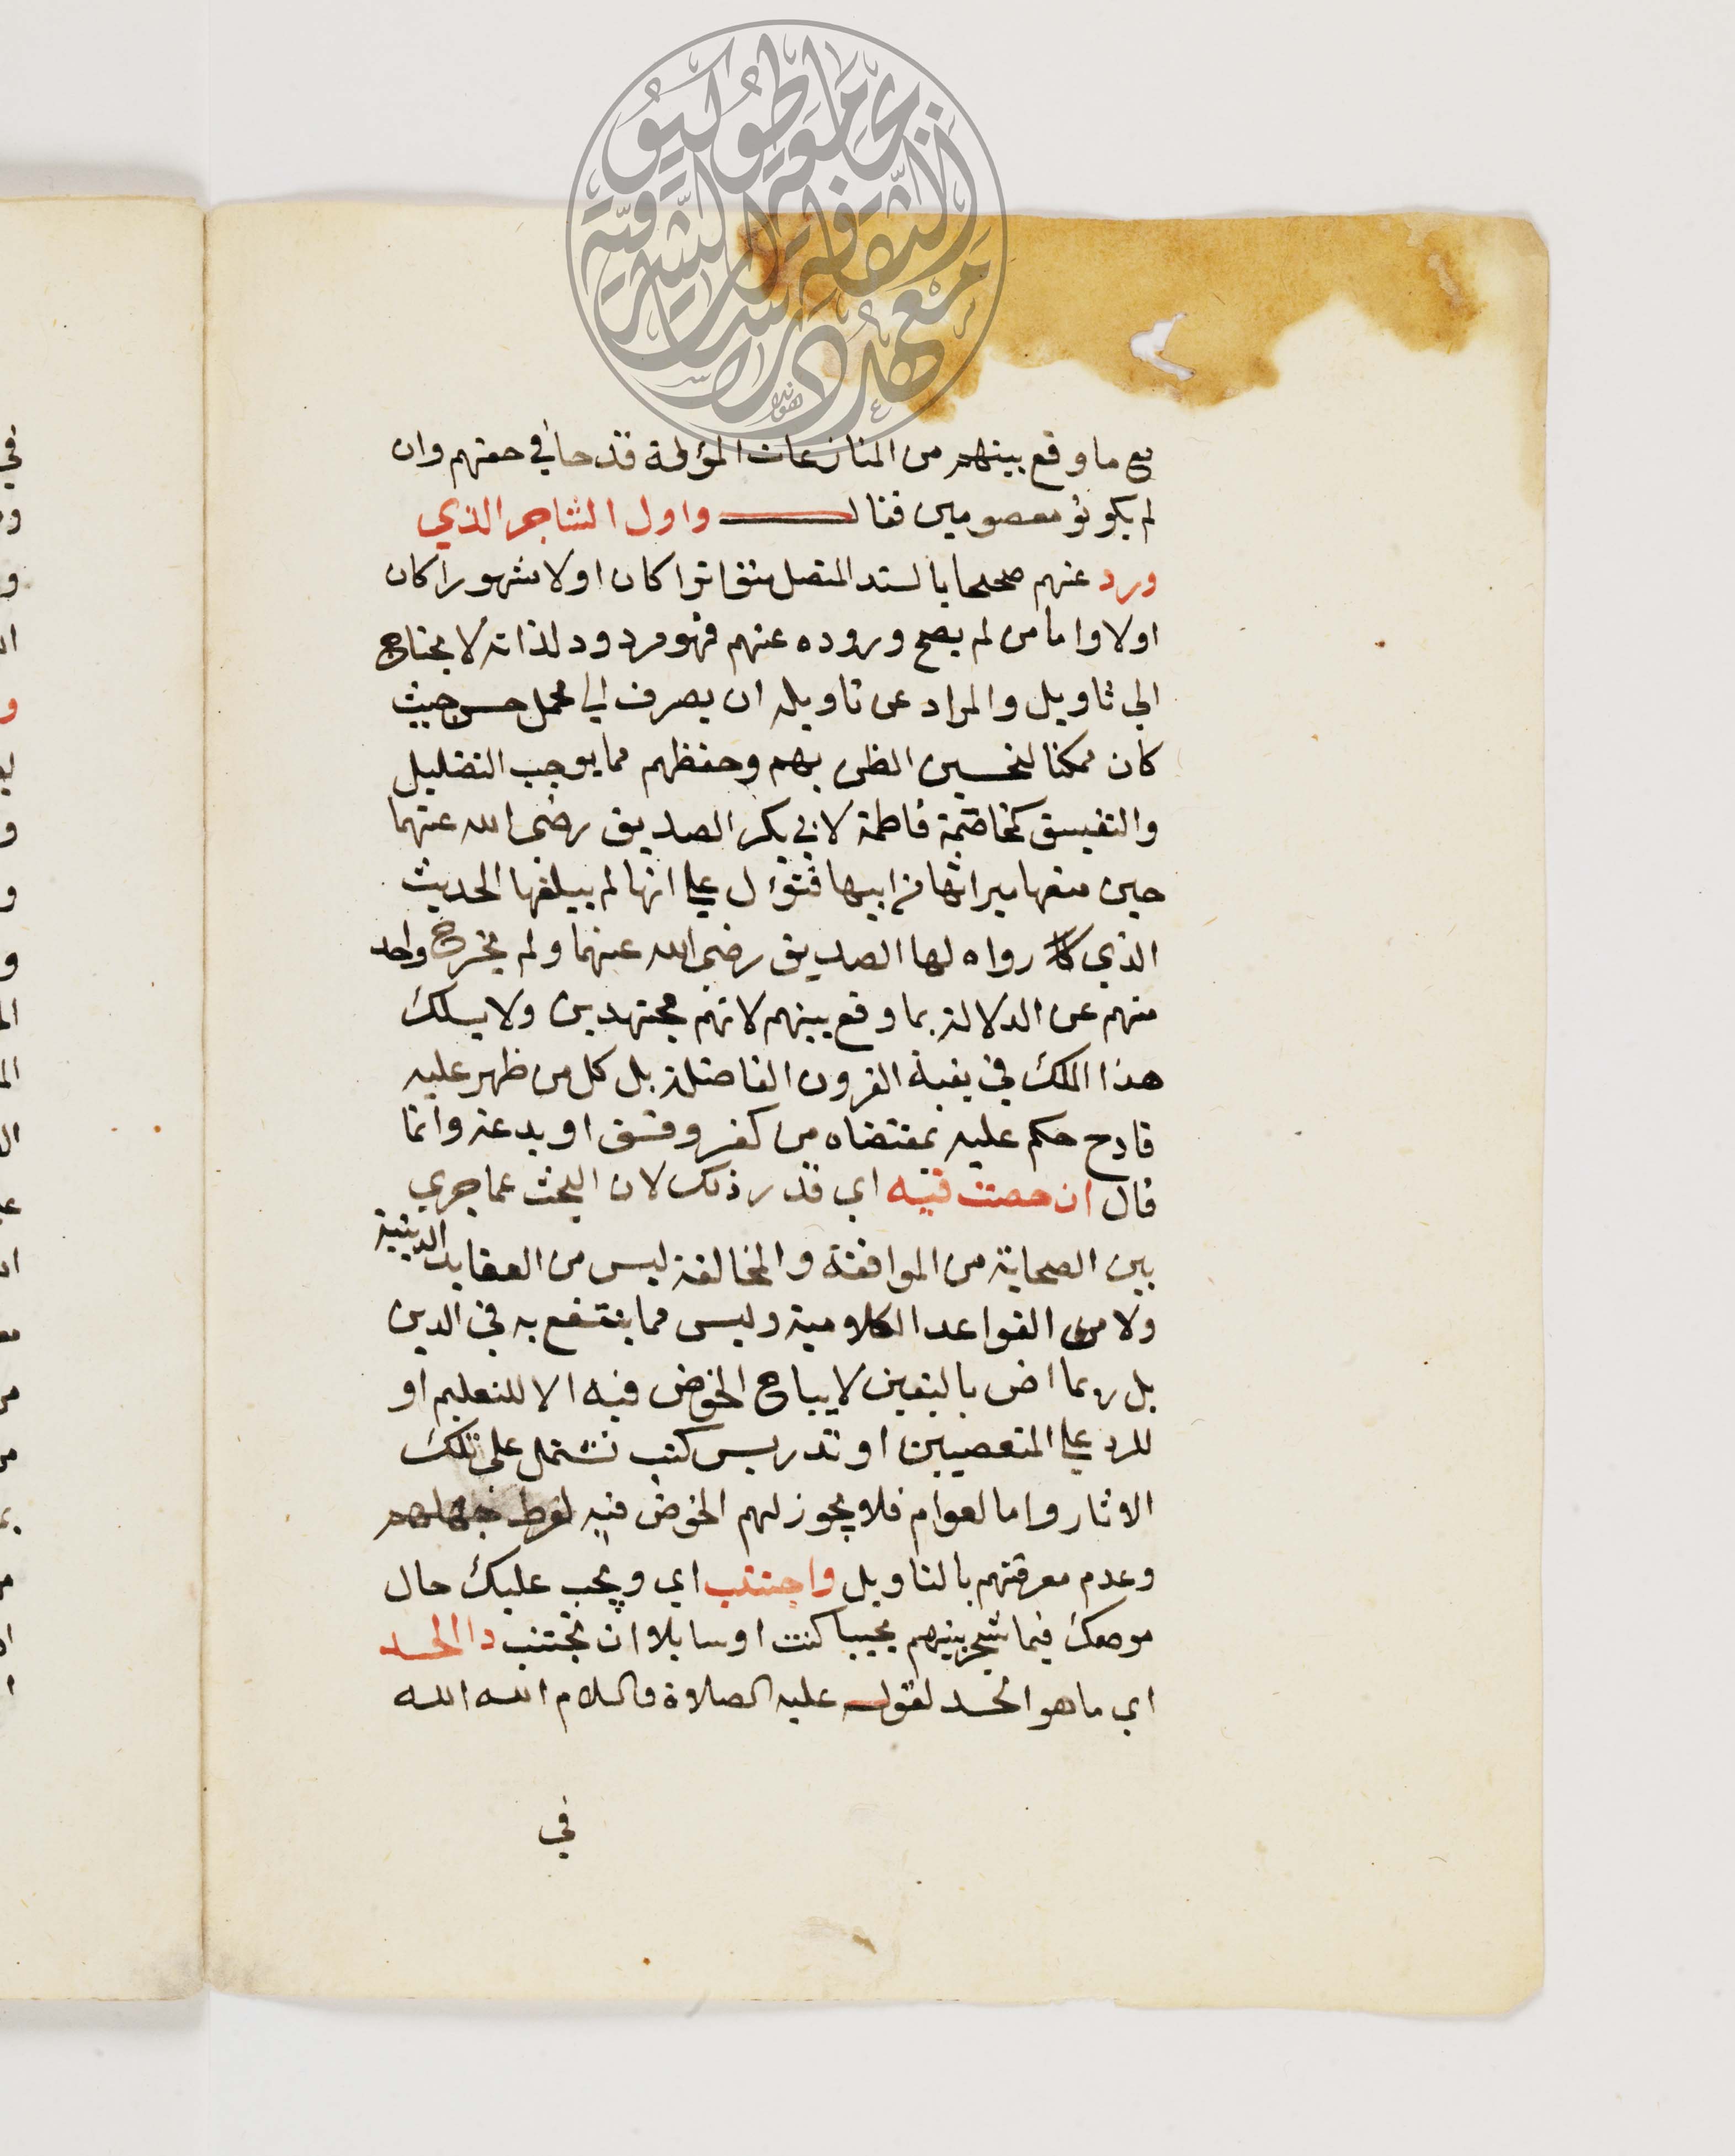 مع ما وقع بينهم من المنازعات المؤلمة قدحا في حقهم وان
لم يكونوا معصومين فقال واول التشاجر الذي
ورد عنهم صحيحا بالسند المتصل متواترا كان اولا مشهورا كان
اولا واما من لم يصح وروده عنهم فهو مردود لذاته لا يحتاج
الي تاويل والمراد عن تاويله ان يصرف الي محمل حسن حيث
كان ممكنا لتحسين الظن بهم وحفظهم مما يوجب التضليل
والتفسيق كخاصمة فاطمة لابي بكر الصديق رضي الله عنهما
حين منعها ميراثها من ابيها فتؤل علي انها لم يبلغها الحديث
الذي رواه لها الصديق رضي الله عنهما ولم يخرج واحد
منهم عن الدلالة بما وقع بينهم لانهم مجتهدين ولا يسلك
هذا الملك في بقية القرون الفاضلة بل كل من ظهر عليه
قادح حكم عليه بمقتضاه من كفر وفسق او بدعة وانما
قال ان خضت فيه اي قدر ذلك لان البحث عما جري
بين الصحابة من الموافقة والمخالفة ليس من العقايد الدينية
ولا من القواعد الكلامية وليس مما ينتفع به في الدين
بل ربما اضر باليقين لا يباح الخوض فيه الا للتعليم او
للرد علي المتعصبين او تدريس كتب تشتمل على تلك
الاثار واما لعوام فلا يجوز لهم الخوض فيه لفرط جهلهم
وعدم معرفتهم بالتاويل واجتنب اي ويجب عليك حال
خوضك فيما شجر بينهم مجيبا كنت او سايلا ان تجتنب دا الحسد
اي ما هو الحسد لقوله عليه الصلاة والسلام الله الله
في